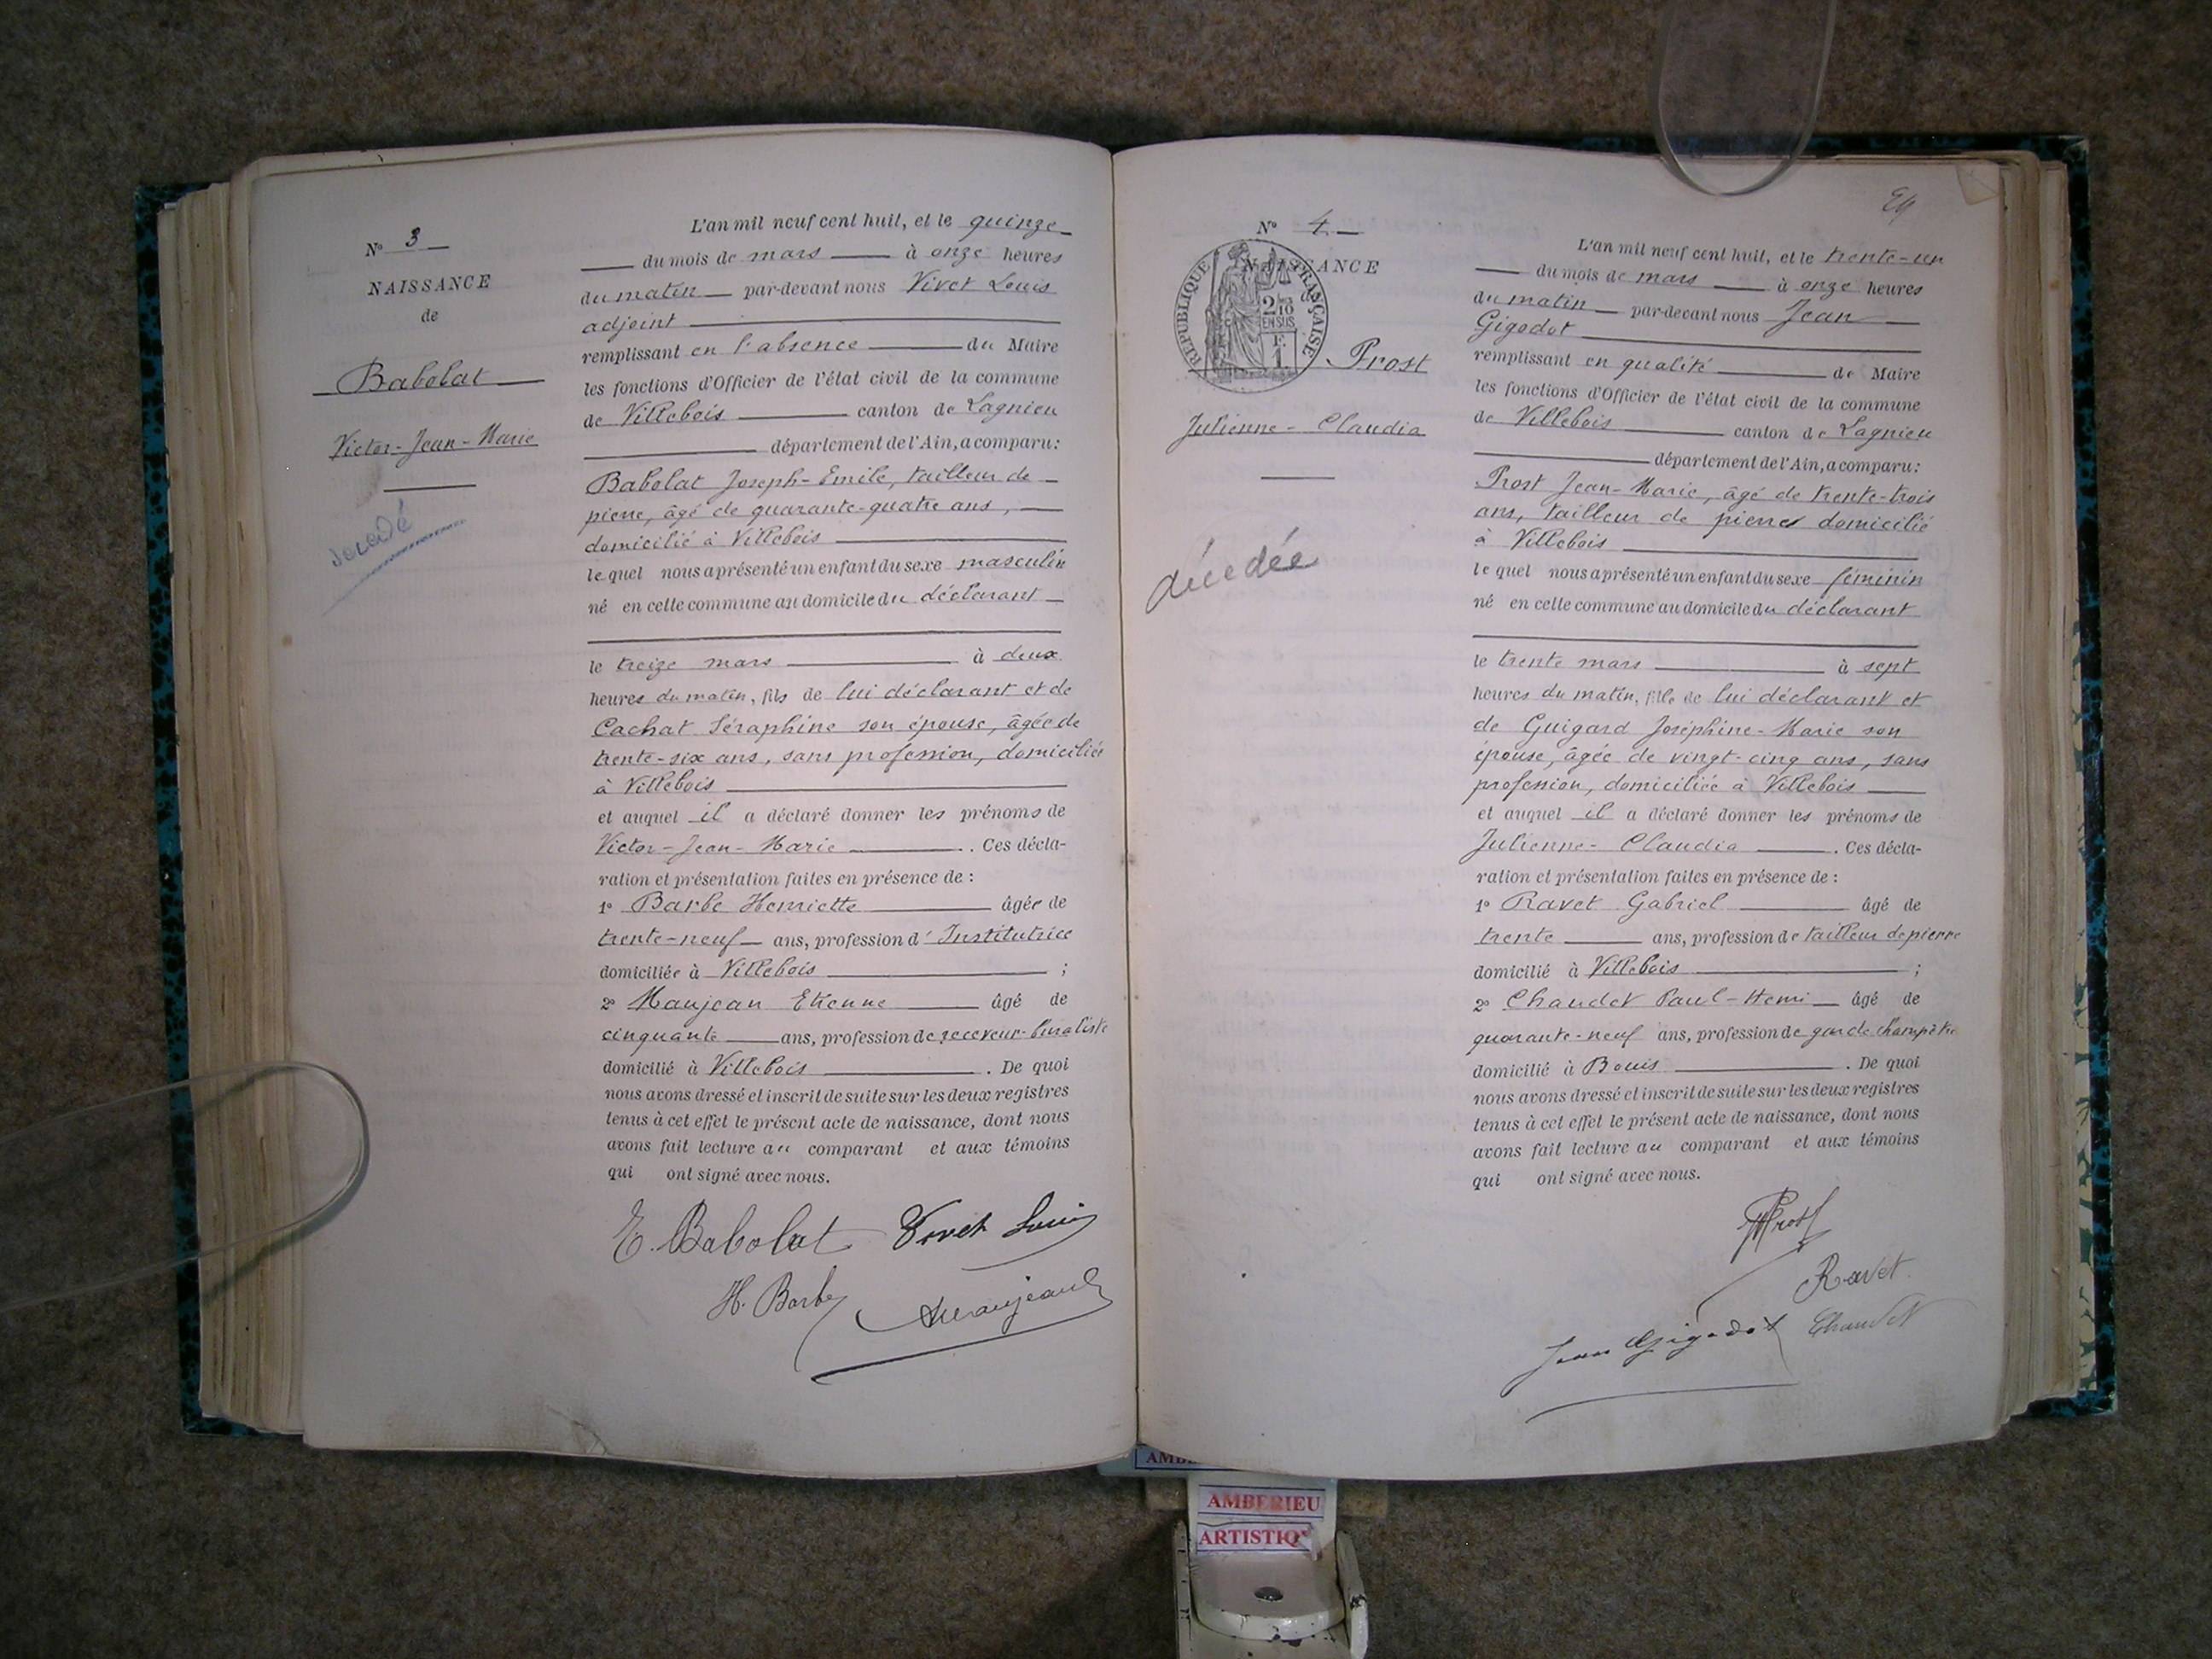 N° 3
NAISSANCE
de
Babolat
Victor-Jean-Marie
décédé
L'an mil neuf cent huit, et le quinze
du mois de mars à onze heures
du matin par-devant nous Vivet Louis
adjoint
remplissant en l'absence du Maire
les fonctions d'Officier de l'état civil de la commune
de Villebois canton de Lagnieu
département de l'Ain, a comparu:
Babolat Joseph-Emile, tailleur de
pierre, âgé de quarante-quatre ans,
domicilié à Villebois
lequel nous a présenté un enfant du sexe masculin
né en cette commune au domicile du déclarant
le treize mars à deux
heures du matin, fils de lui déclarant et de
Cachat Séraphine son épouse, âgée de
trente-six ans, sans profession, domiciliée
à Villebois
et auquel il a déclaré donner les prénoms de
Victor-Jean-Marie. Ces décla-
ration et présentation faites en présence de :
1° Barbe Henriette âgée de
trente-neuf ans, profession d'Institutrice
domiciliée à Villebois ;
2° Maujean Etienne âgé de
cinquante ans, profession de receveur-buraliste
domicilié à Villebois. De quoi
nous avons dressé et inscrit de suite sur les deux registres
tenus à cet effet le présent acte de naissance, dont nous
avons fait lecture au comparant et aux témoins
qui ont signé avec nous.
E. Babolat Vivet Louis
H. Barbe Maujean
N° 4
NAISSANCE
de
RÉPUBLIQUE FRANÇAISE
2/10
EN SUS
F.
1
Prost
Julienne-Claudia
décédée
24
L'an mil neuf cent huit, et le trente-un
du mois de mars à onze heures
du matin par-devant nous Jean
Gigodot
remplissant en qualité de Maire
les fonctions d'Officier de l'état civil de la commune
de Villebois canton de Lagnieu
département de l'Ain, a comparu:
Prost Jean-Marie, âgé de trente-trois
ans, tailleur de pierres domicilié
à Villebois
lequel nous a présenté un enfant du sexe féminin
né en cette commune au domicile du déclarant
le trente mars à sept
heures du matin, fille de lui déclarant et
de Guigard Joséphine-Marie son
épouse, âgée de vingt-cinq ans, sans
profession, domiciliée à Villebois
et auquel il a déclaré donner les prénoms de
Julienne-Claudia. Ces décla-
ration et présentation faites en présence de :
1° Ravet Gabriel âgé de
trente ans, profession de tailleur de pierre
domicilié à Villebois ;
2° Chaudet Paul-Henri âgé de
quarante-neuf ans, profession de garde champêtre
domicilié à Bouis. De quoi
nous avons dressé et inscrit de suite sur les deux registres
tenus à cet effet le présent acte de naissance, dont nous
avons fait lecture au comparant et aux témoins
qui ont signé avec nous.
Prost
Ravet
Jean Gigodot Chaudet
AMBERIEU
ARTISTIQ